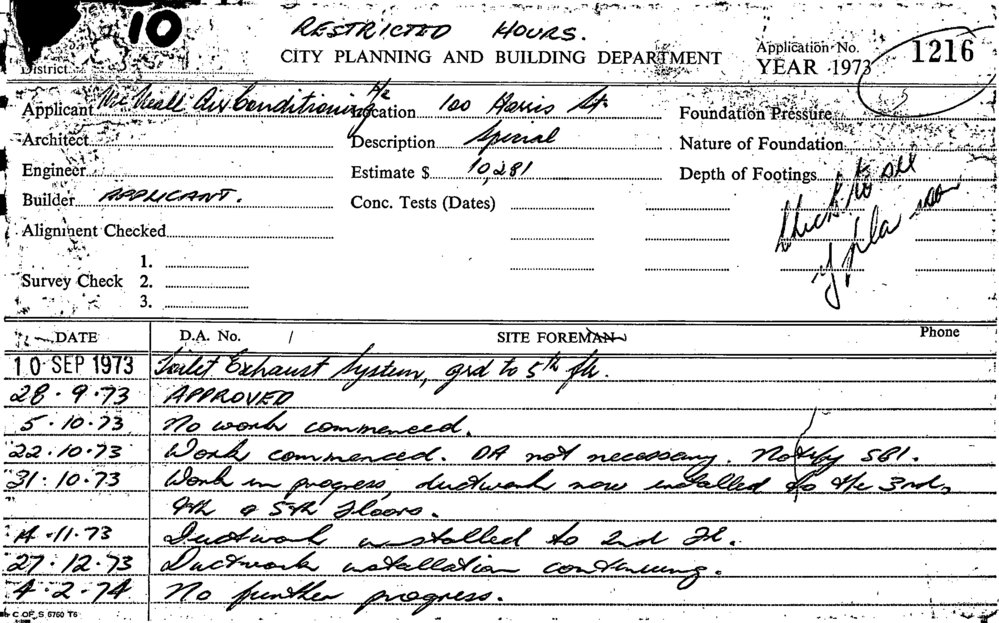 10
RESTRICTED HOURS.
CITY PLANNING AND BUILDING DEPARTMENT
Application No.
YEAR 1973
1216
District
Applicant Mc Neall Air Conditioning P/L Location 100 Harris St. Foundation Pressure
Architect Description Special Nature of Foundation
Engineer Estimate $ 10,281 Depth of Footings
Builder APPLICANT. Conc. Tests (Dates)
Alignment Checked
Survey Check 1.
2.
3.
DATE D.A. No. / SITE FOREMAN Phone
10 SEP 1973 Toilet Exhaust System, grd to 5th flr.
28.9.73 APPROVED
5.10.73 No work commenced.
22.10.73 Work commenced. DA not necessary. Notify SBI.
31.10.73 Work in progress, ductwork now installed to the 3rd,
4th & 5th Floors.
14.11.73 Ductwork installed to 2nd Fl.
27.12.73 Ductwork installation continuing.
4.2.74 No further progress.
C OF S 6760 T6